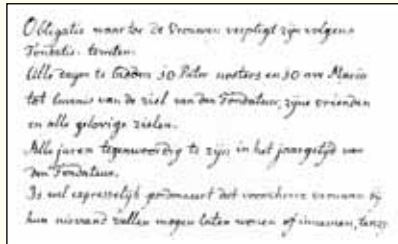 Obligatie waar toe de Vrouwen verpligt zijn volgens
Fondatie
Alle dagen te 30 Pater nosters en 30 ave Maria
tot lavenis van de ziel van den Fondateur, zijne vrienden
en alle gelovige zielen.
Alle jaren tegenwoordig te zijn in het jaargetijd van
den Fondateur.
Is wel expresselijk dat
hun niemand zullen mogen laten wonen of innemen, tenzy